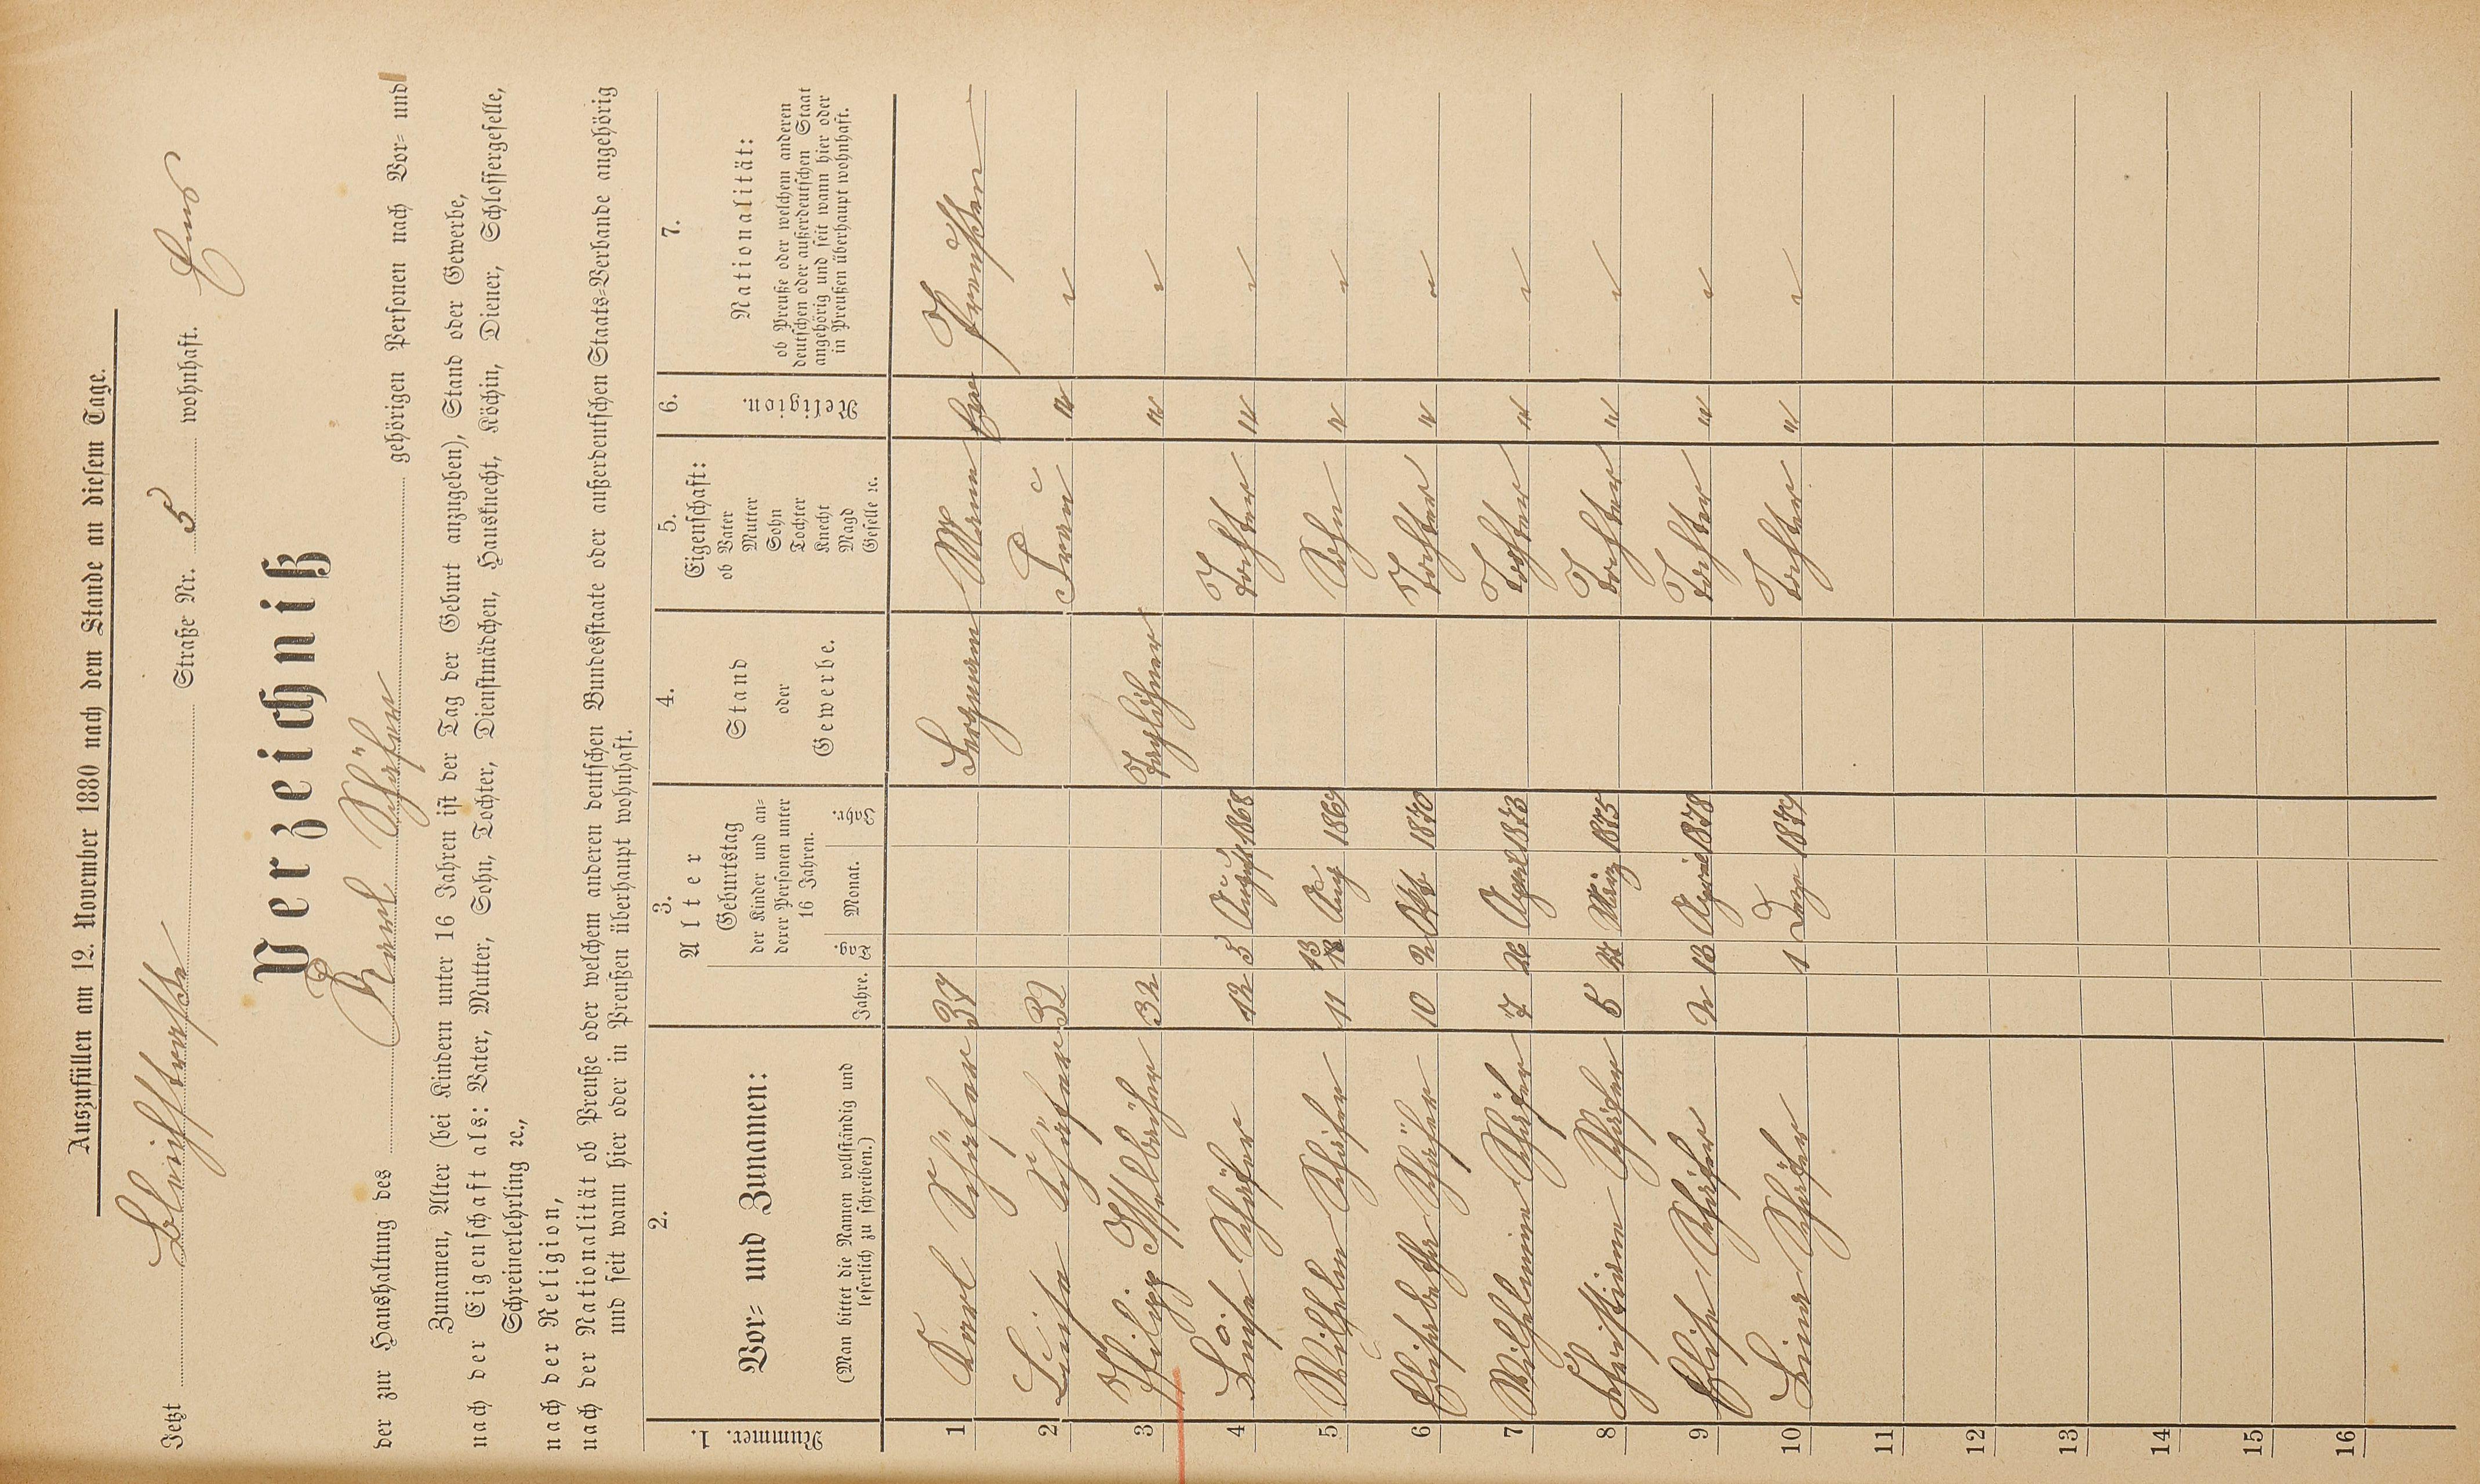 Auszufüllen am 12. November 1880 nach dem Stande an diesem Tage.
Jetzt Bleichstraße Straße Nr. 5 wohnhaft. Ems
Verzeichniß
der zur Haushaltung des Karl Schäfer gehörigen Personen nach Vor- und
Zunamen, Alter (bei Kindern unter 16 Jahren ist der Tag der Geburt anzugeben), Stand oder Gewerbe,
nach der Eigenschaft als: Vater, Mutter, Sohn, Tochter, Dienstmädchen, Hausknecht, Köchin, Diener, Schlossergeselle,
Schreinerlehrling ꝛc.,
nach der Religion,
nach der Nationalität ob Preuße oder welchem anderen deutschen Bundesstaate oder außerdeutschen Staats-Verbande angehörig
und seit wann hier oder in Preußen überhaupt wohnhaft.
1. Nummer.
2. Vor- und Zunamen:
(Man bittet die Namen vollständig und
leserlich zu schreiben.)
3. Alter
Jahre.
Geburtstag
der Kinder und an-
derer Personen unter
16 Jahren.
Tag Monat. Jahr.
4. Stand
oder
Gewerbe.
5. Eigenschaft:
ob Vater
Mutter
Sohn
Tochter
Knecht
Magd
Geselle ꝛc.
6. Religion.
7. Nationalität:
ob Preuße oder welchem anderen
deutschen oder außerdeutschen Staat
angehörig und seit wann hier oder
in Preußen überhaupt wohnhaft.
1 Karl Schäfer 37 Bergmann Mann Eva Preußen
2 Luise Schäfer 32 Frau " "
3 Philipp 32 Taglöhner " "
4 Luise Schäfer 12 5 August 1868 Tochter " "
5 Wilhelm Schäfer 11 13 Aug 1869 Sohn " "
6 Elisabetha Schäfer 10 2 Okt 1870 Tochter " "
7 Wilhelmine Schäfer 7 26 April 1873 Tochter " "
8 Christiane Schäfer 5 März 1875 Tochter " "
9 Elise Schäfer 2 13 April 1878 Tochter " "
10 Lina Schäfer 1 Deze 1879 Tochter " "
11
12
13
14
15
16